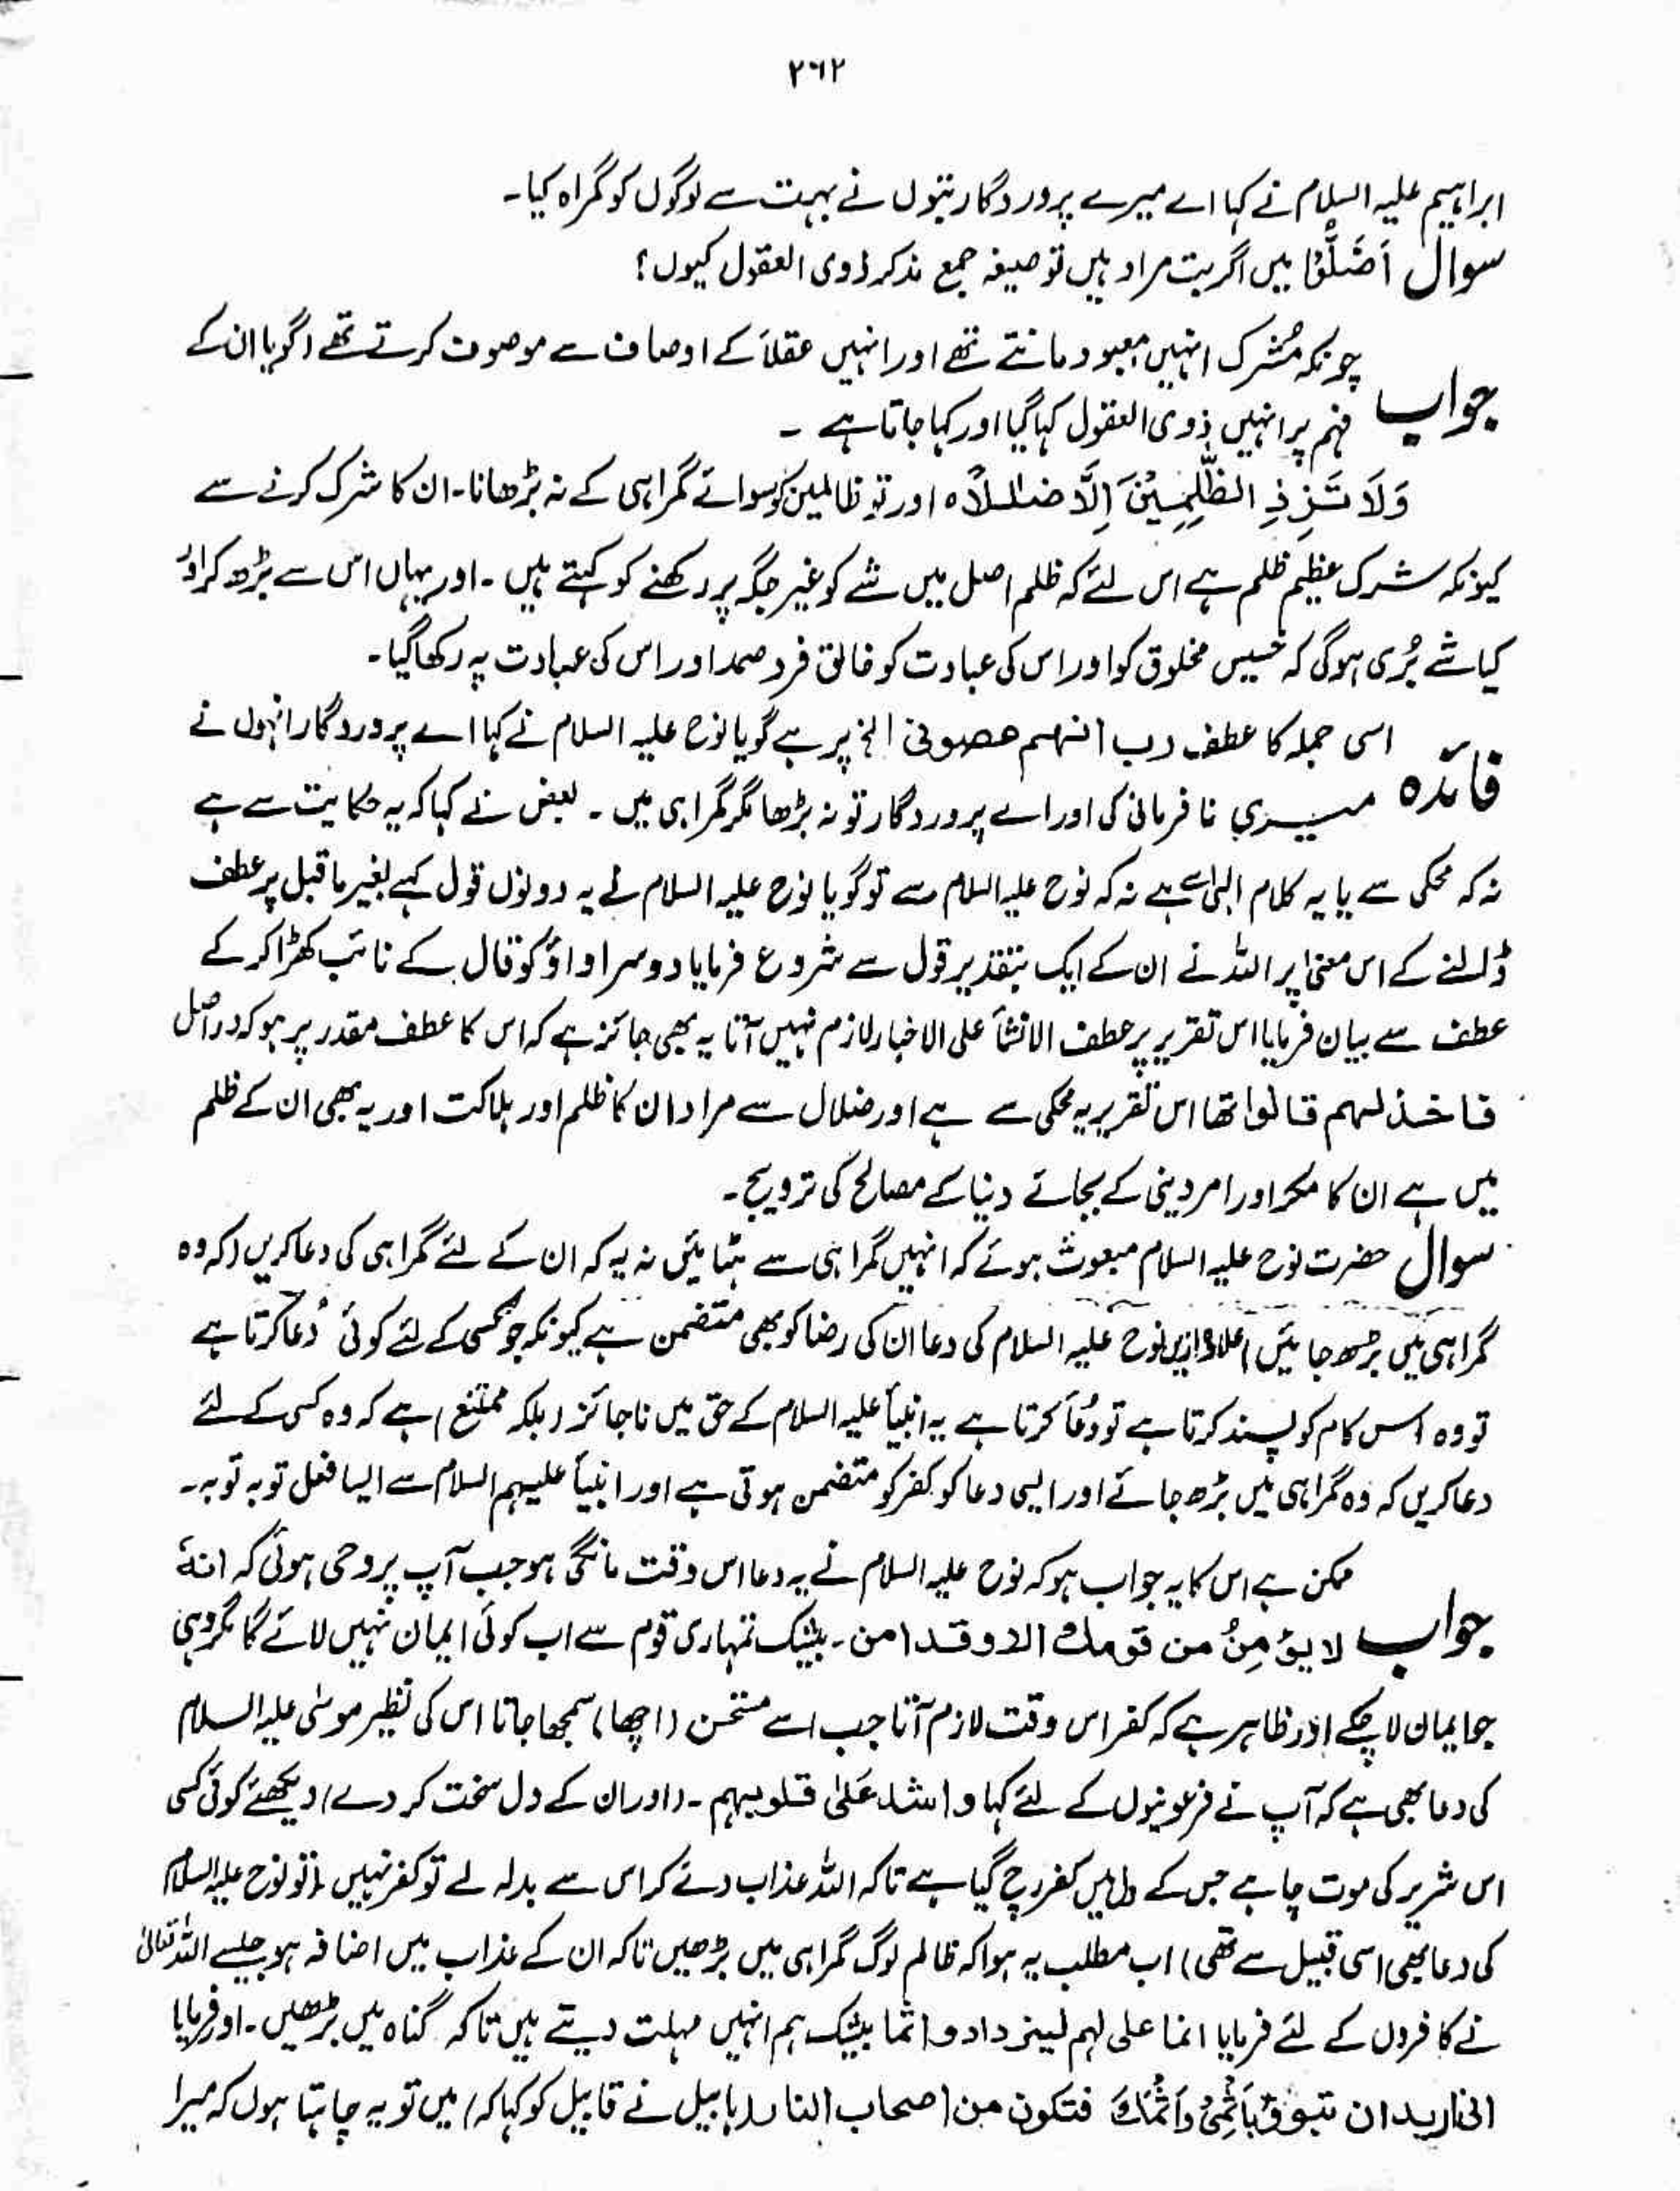 ۲۶۲
ابراہیم علیہ السلام نے کہا اے میرے پروردگار بتوں نے بہت سے لوگوں کو گمراہ کیا۔
سوال اَضَلُّوْا میں اگر بت مراد ہیں تو صیغہ جمع مذکر ذوی العقول کیوں؟
چونکہ مُشرک انہیں معبود مانتے تھے اور انہیں عقلاَ کے اوصاف سے موصوف کرتے تھے (گویا ان کے
جواب فہم پر انہیں ذوی العقول کہا گیا اور کہا جاتا ہے ۔
وَلَا تَزِدِ الظّٰلِمِیْنَ اِلَّا ضلٰلاً ہ اور تو ظالمین کو سوائے گمراہی کے نہ بڑھانا۔ ان کا شرک کرنے سے
کیونکہ شرک عظیم ظلم ہے اس لئے کہ ظلم اصل میں شے کو غیر جگہ پر رکھنے کو کہتے ہیں ۔ اور یہاں اس سے بڑھ کر اور
کیا شے بُری ہوگی کہ خسیس مخلوق کو اور اس کی عبادت کو خالق فرد صمد اور اس کی عبادت پہ رکھا گیا۔
اسی جملہ کا عطف رب انہم عصونی الخ پر ہے گویا نوح علیہ السلام نے کہا اے پروردگار انہوں نے
فائدہ میری نافرمانی کی اور اے پروردگار تو نہ بڑھا مگر گمراہی میں ۔ بعض نے کہا کہ یہ حکایت سے ہے
نہ کہ محکی سے یا یہ کلام الہٰی ہے نہ کہ نوح علیہ السلام سے تو گویا نوح علیہ السلام نے یہ دونوں قول کہے بغیر ماقبل پر عطف
ڈالنے کے اس معنیٰ پر اللہ نے ان کے ایک بتقدیر قول سے شروع فرمایا دوسرا واؤ کو قال کے نائب کھڑا کر کے
عطف سے بیان فرمایا اس تقریر پر عطف الانشأ علی الاخبار لازم نہیں آتا یہ بھی جائز ہے کہ اس کا عطف مقدر پر ہو کہ دراصل
فاخذلہم قالوا تھا اس تقریر یہ محکی سے ہے اور ضلال سے مراد ان کا ظلم اور ہلاکت اور یہ بھی ان کے ظلم
میں ہے ان کا مکر اور امر دینی کے بجائے دنیا کے مصالح کی ترویج۔
سوال حضرت نوح علیہ السلام مبعوث ہوئے کہ انہیں گمراہی سے ہٹائیں نہ یہ کہ ان کے لئے گمراہی کی دعا کریں (کہ وہ
گمراہی میں بڑھ جائیں) علاوہ ازیں نوح علیہ السلام کی دعا ان کی رضا کو بھی متضمن ہے کیونکہ جو کسی کے لئے کوئی دُعا کرتا ہے
تو وہ اس کام کو پسند کرتا ہے تو دُعاَ کرتا ہے یہ انبیأ علیہ السلام کے حق میں ناجائز (بلکہ ممتنع) ہے کہ وہ کسی کے لئے
دعا کریں کہ وہ گمراہی میں بڑھ جائے اور ایسی دعا کو کفر کو متضمن ہوتی ہے اور انبیأ علیہم السلام سے ایسا فعل توبہ توبہ۔
ممکن ہے اس کا یہ جواب ہو کہ نوح علیہ السلام نے یہ دعا اس وقت مانگی ہو جب آپ پر وحی ہوئی کہ انہٗ
جواب لا یؤمِنُ من قومك الا وقد امن ۔ بیشک تمہاری قوم سے اب کوئی ایمان نہیں لائے گا مگر وہی
جو ایمان لا چکے اور ظاہر ہے کہ کفر اس وقت لازم آتا جب اسے مستحسن (اچھا) سمجھا جاتا اس کی نظیر موسٰی علیہ السلام
کی دعا بھی ہے کہ آپ نے فرعونیوں کے لئے کہا و اشدد عَلٰی قلوبہم ۔ (اور ان کے دل سخت کر دے) دیکھئے کوئی کسی
اس شریر کی موت چاہے جس کے دل میں کفر رچ گیا ہے تاکہ اللہ عذاب دے کر اس سے بدلہ لے تو کفر نہیں (تو نوح علیہ السلام
کی دعا بھی اسی قبیل سے تھی) اب مطلب یہ ہوا کہ ظالم لوگ گمراہی میں بڑھیں تاکہ ان کے عذاب میں اضافہ ہو جیسے اللہ تعالٰی
نے کافروں کے لئے فرمایا انما علی لہم لیزدادوا اثما بیشک ہم انہیں مہلت دیتے ہیں تاکہ گناہ میں بڑھیں ۔ اور فرمایا
انی ارید ان تبوٓءَ بِاَثْمِیْ وَاَثْمُكَ فتکون من اصحاب النار (ہابیل نے قابیل کو کہا کہ) میں تو یہ چاہتا ہوں کہ میرا